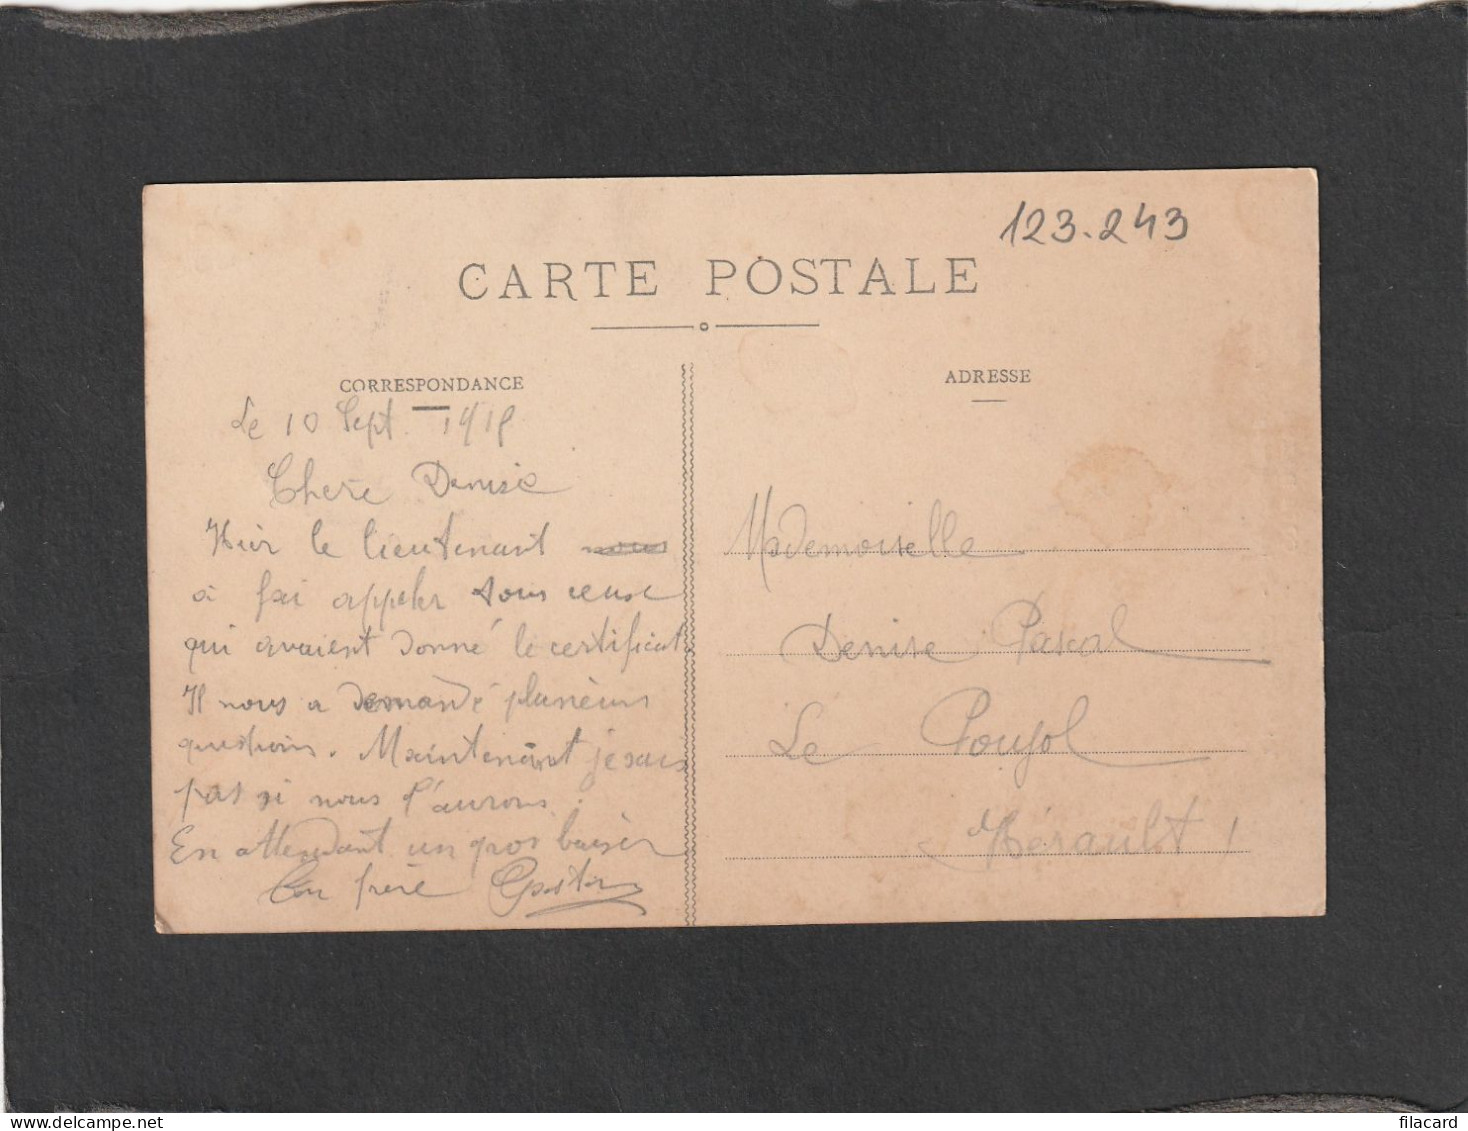 123.243
CARTE POSTALE
CORRESPONDANCE
Le 10 Sept. 1918
Chere Denise
Hier le lieutenant nous
à fai appeler tous ceux
qui avaient donné le certificat.
Il nous a demandé plusieurs
questions. Maintenant je sais
pas si nous l'aurons.
En attendant un gros baiser
Ton frère Gaston
ADRESSE
Mademoiselle
Denise Pascal
Le Poujol
Hérault
filacard.com